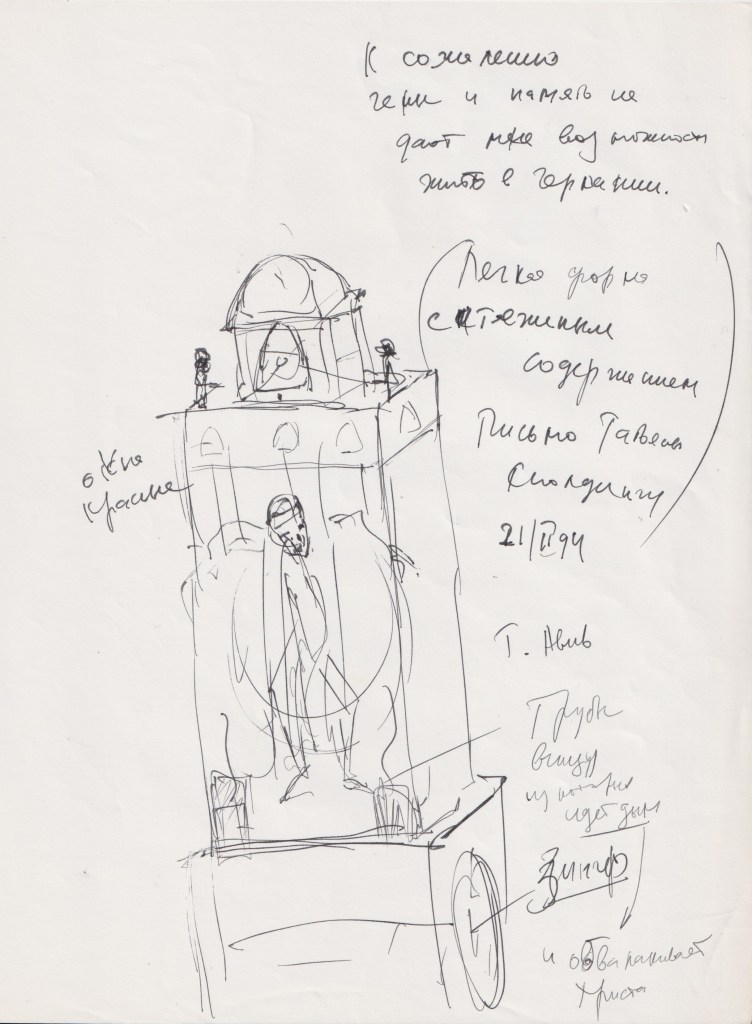 К сожалению
гены и память не
дают мне возможности
жить в Германии.
Легкая форма
с тяжелым
содержанием
Письмо Татьяны
21/II 94
Т. Авив
окна
красные
Трубы
внизу
из которых
идет дым
Зингер
и обволакивает
Христа